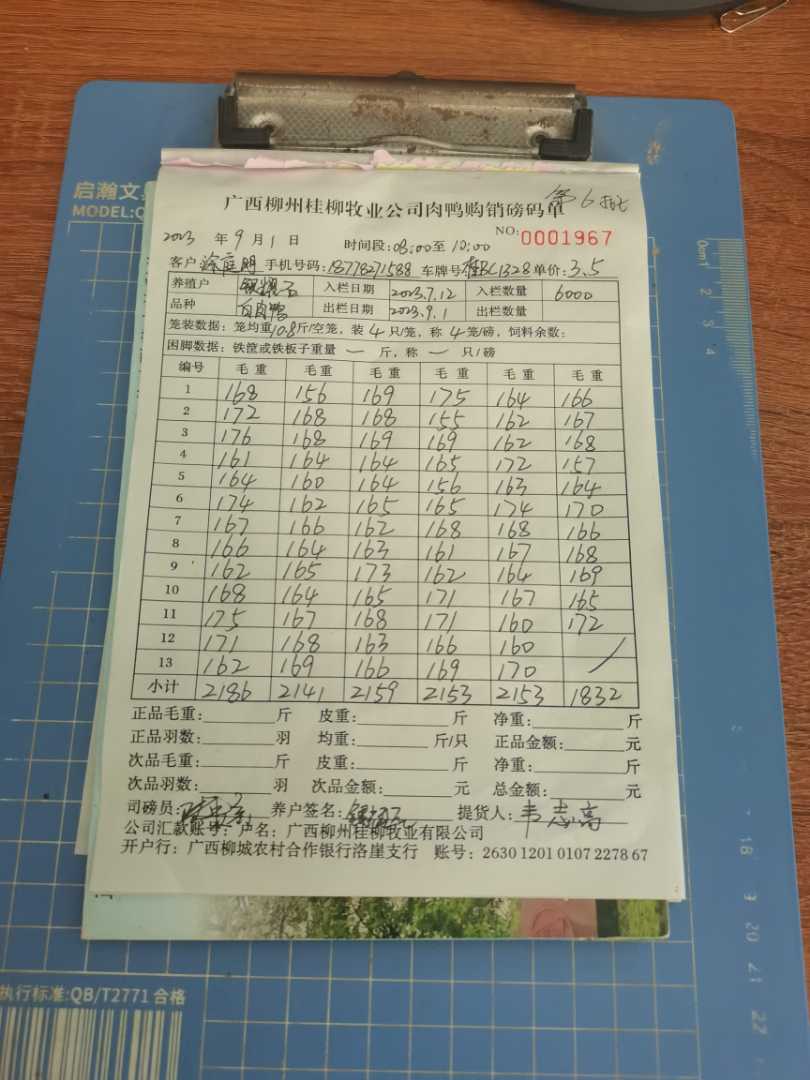 启瀚文
MODEL:Q
第6批
广西柳州桂柳牧业公司肉鸭购销磅码单
NO:0001967
2023 年 9 月 1 日 时间段:08:00至10:00
客户 涂庭明 手机号码:18778271588 车牌号 桂BC1328 单价:3.5
养殖户 入栏日期 2023.7.12 入栏数量 6000
品种 白肉鸭 出栏日期 2023.9.1 出栏数量
笼装数据:笼均重10.8斤/空笼,装 4 只/笼,称 4 笼/磅,饲料余数:
困脚数据:铁筐或铁板子重量 一 斤,称 一 只/磅
编号 毛重 毛重 毛重 毛重 毛重 毛重
1 168 156 169 175 164 166
2 172 168 168 155 162 167
3 176 168 169 169 162 168
4 161 164 164 165 172 157
5 164 160 164 156 163 164
6 174 162 165 165 174 170
7 167 166 162 168 168 166
8 166 164 163 161 167 168
9 162 165 173 162 164 169
10 168 164 165 171 167 165
11 175 167 168 171 160 172
12 171 168 163 166 160
13 162 169 166 169 170 /
小计 2186 2141 2159 2153 2153 1832
正品毛重: 斤 皮重: 斤 净重: 斤
正品羽数: 羽 均重: 斤/只 正品金额: 元
次品毛重: 斤 皮重: 斤 净重: 斤
次品羽数: 羽 次品金额: 元 总金额: 元
司磅员: 养户签名: 提货人:韦志高
公司汇款账号:户名:广西柳州桂柳牧业有限公司
开户行:广西柳城农村合作银行洛崖支行 账号:2630 1201 0107 2278 67
0cm1 2 3 4
18 19 20 21 22
执行标准:QB/T2771 合格